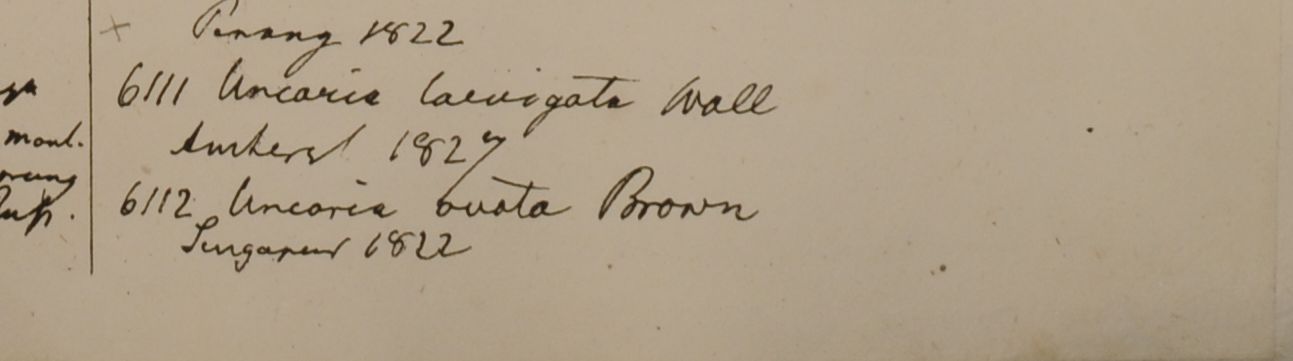 Penang 1822
6111 Uncaria laevigata Wall
Amherst 1827
moul.
6112 Uncaria ovata Brown
Singapur 1822